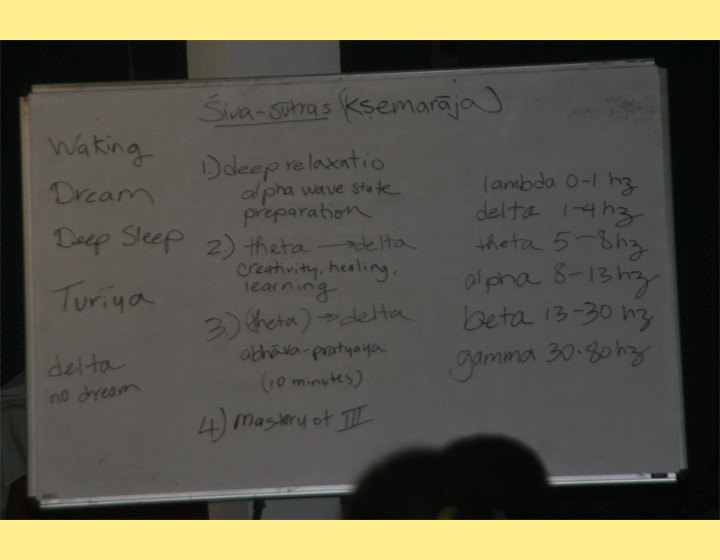 Śiva-sūtras (Kṣemarāja)
Waking
Dream
Deep Sleep
Turīya
delta
no dream
1) deep relaxatio
alpha wave state
preparation
2) theta → delta
creativity, healing,
learning
3) (theta) → delta
abhāva-pratyaya
(10 minutes)
4) mastery of III
lambda 0-1 hz
delta 1-4 hz
theta 5-8 hz
alpha 8-13 hz
beta 13-30 hz
gamma 30-80 hz